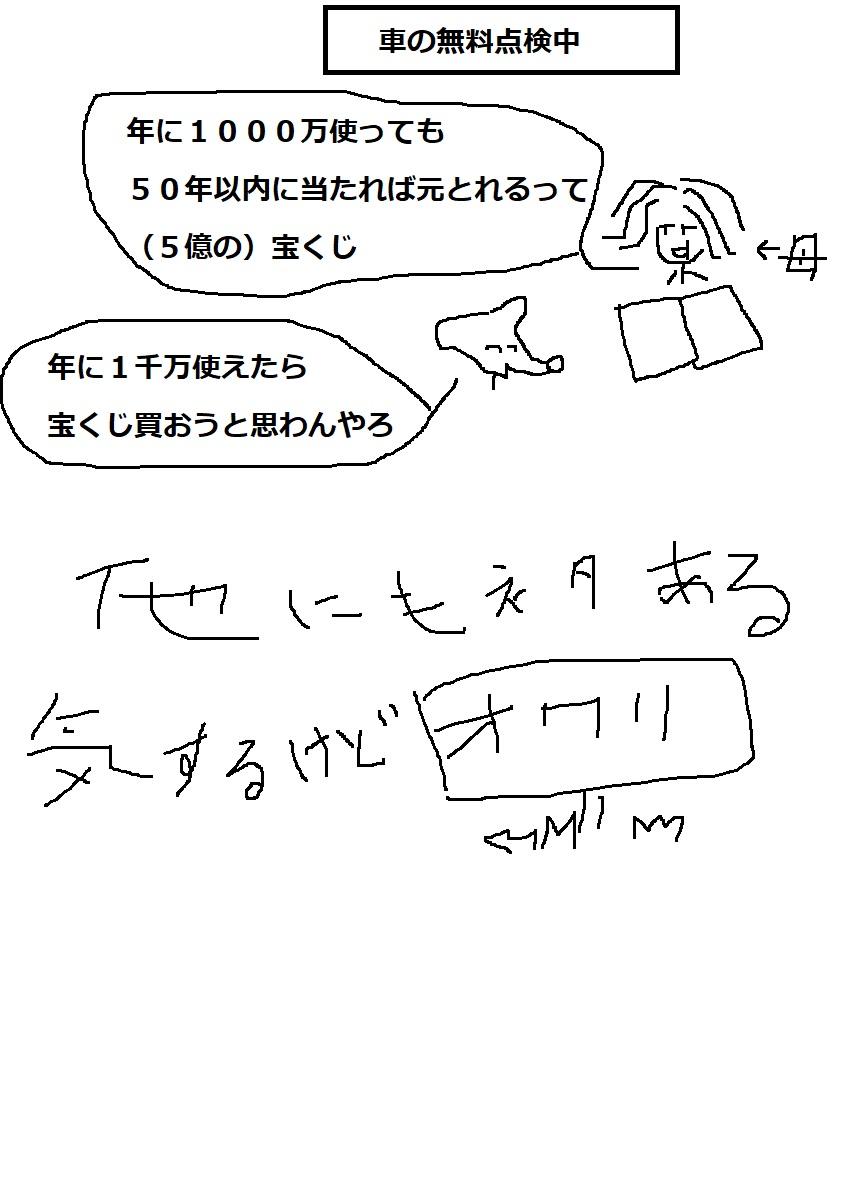 車の無料点検中
年に１０００万使っても
５０年以内に当たれば元とれるって
（５億の）宝くじ
←母
年に１千万使えたら
宝くじ買おうと思わんやろ
他にもネタある
気するけど オワリ